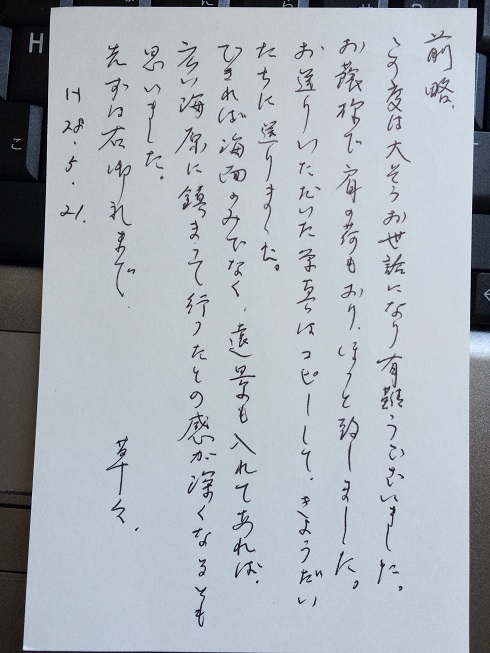 前略、
この度は大そうお世話になり有難うございました。
お蔭様で肩の荷もおり、ほっと致しました。
お送りいただいた写真はコピーして、きょうだい
たちに送りました。
ひきれば海面のみでなく、遠景も入れてあれば、
広い海原に鎮まって行ったとの感が深くなるとも
思いました。
先ずは右御礼まで、
草々、
H28.5.21.
H
こ